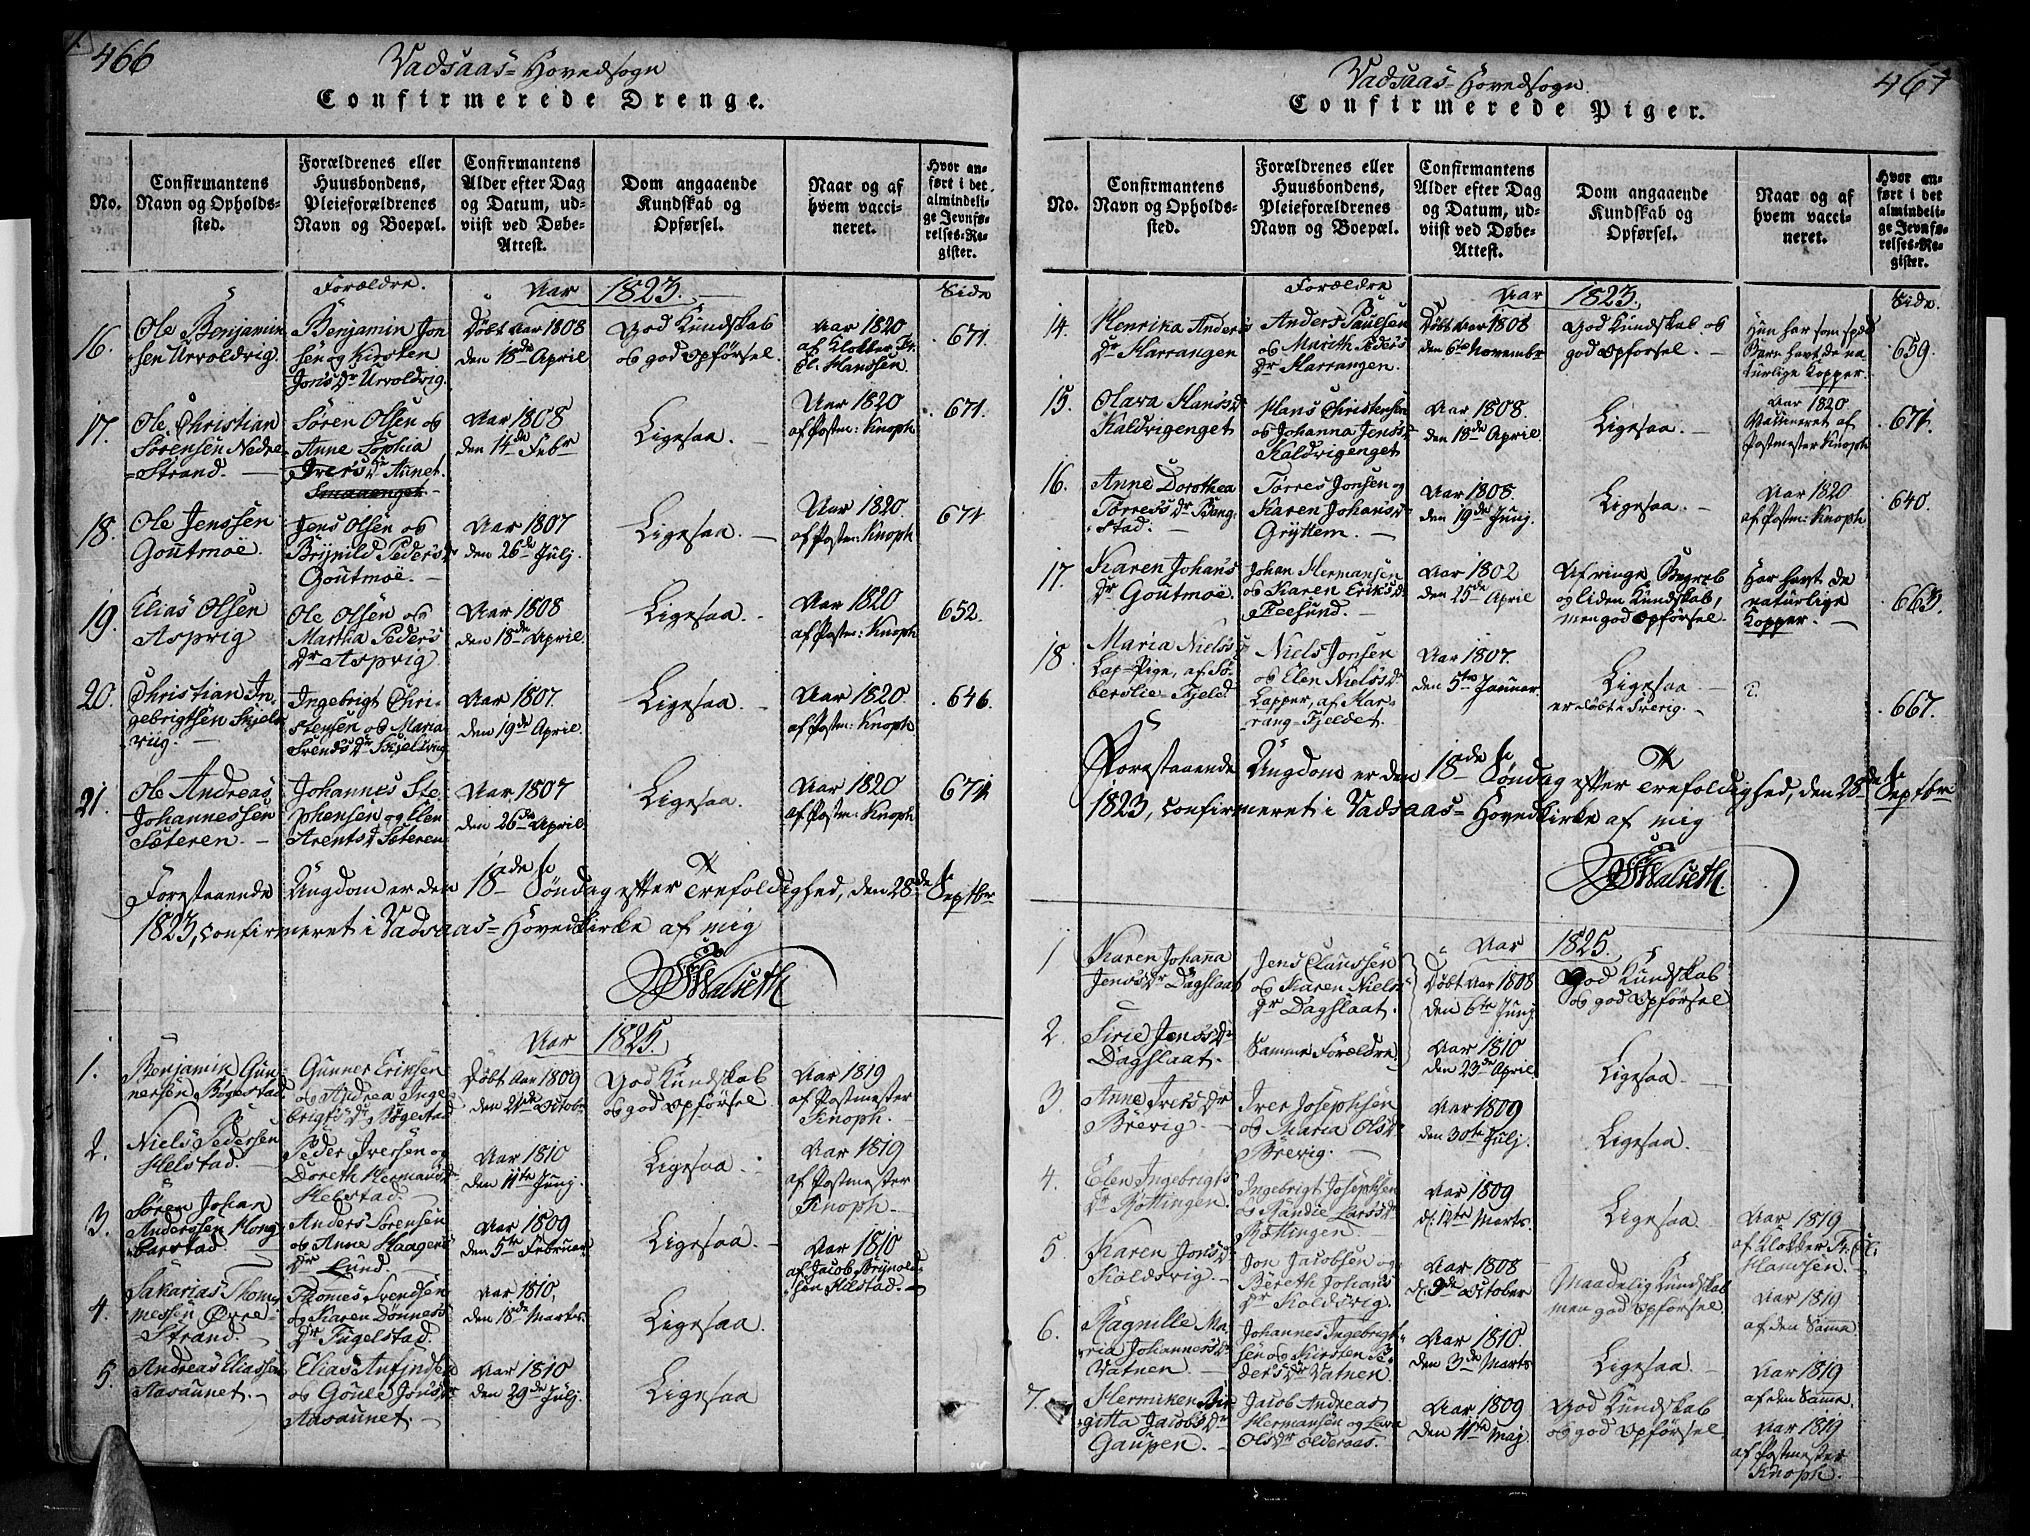 466
Vadsaas- Hovedsogn
Confirmerede Drenge.
No.
Confirmantens
Navn og Opholds-
sted.
Forældrenes eller
Huusbondens,
Pleieforældrenes
Navn og Boepæl.
Confirmantens
Alder efter Dag
og Datum, ud-
viist ved Døbe-
Attest.
Dom angaaende
Kundskab og
Opførsel.
Naar og af
hvem vacci-
neret.
Hvor an-
ført i det
almindeli-
ge Jevnfø-
relses-Re-
gister.
Forældre.
Aar 1823.
Side
16.
Ole Benjamin
sen Urvoldvig.
Benjamin Jon
sen og Kirsten
Jons Dr Urvoldvig.
Døbt Aar 1808
den 18de April
God Kundskab
og god Opførsel.
Aar 1820
af Klokker Fr.
Cl. Hanssen.
671.
17.
Ole Christian
Sørensen Nedre
Strand.
Søren Olsen og
Anne Sophia
Ivers Dr Aunet.
Smaaenget
Aar 1808
den 14de Febr
Ligesaa.
Aar 1820
af Postm: Knoph
671.
18.
Ole Jenssen
Goutmoe.
Jens Olsen og
Brynild Peders Dr
Goutmoe.
Aar 1807
den 26de Julj.
Ligesaa.
Aar 1820
af Postm: Knoph
671
19.
Elias Olsen
Aspvig
Ole Olsen og
Martha Peders
Dr Aspvig
Aar 1808
den 18de April
Ligesaa.
Aar 1820
af Postm: Knoph
652.
20.
Christian In-
gebrigtsen Skjels
viig.
Ingebrigt Chri-
stensen og Maria
Svends Dr Skjelsviig
Aar 1807.
den 19de April
Ligesaa.
Aar 1820
af Postm: Knoph
646.
21.
Ole Andreas
Johannessen
Sæteren.
Johannes Ste-
phensen og Elen
Arents D Sæteren
Aar 1807
den 26de April
Ligesaa.
Aar 1820
af Postm: Knoph
671.
Forestaaende Ungdom er den 18de Søndag efter Trefoldighed, den 28de Septbr
1823, confirmeret i Vadsaas- Hovedkirke af mig
Walseth
Aar 1825.
1.
Benjamin Gun-
nersen Bøgestad
Gunner Eriksen
og Andrea Inge-
brigts Dr Bøgestad
Døbt Aar 1809
den 21de Octobr
God Kundskab
og god Opførsel
Aar 1819
af Postmester
Knoph.
2.
Niels Pedersen
Helstad.
Peder Iversen og
Doreth Hermans Dr
Helstad.
Aar 1810
den 11te Junj
Ligesaa
Aar 1819
af Postmester
Knoph.
3.
Søren Johan
Anderssen Hong-
barstad.
Anders Sørensen
og Anne Haagens
Dr Lund
Aar 1809
den 5te Februar
Ligesaa
Aar 1810
af Jacob Brynold-
sen Helstad.
4.
Sakarias Thom-
messen Øvre-
Strand
Thomes Svendsen
og Karen Dønnes
Dr Fugelstad.
Aar 1810,
den 18de Marts.
Ligesaa.
5.
Andreas Eliassen
Aasaunet.
Elias Anfindsen
og Goule Jons Dr
Aasaunet.
Aar 1810
den 29de Julj.
Ligesaa
467
Vadsaas- Hovedsogn
Confirmerede Piger.
No.
Confirmantens
Navn og Opholds-
sted.
Forældrenes eller
Huusbondens,
Pleieforældrenes
Navn og Boepæl.
Confirmantens
Alder efter Dag
og Datum, ud-
viist ved Døbe-
Attest.
Dom angaaende
Kundskab og
Opførsel.
Naar og af
hvem vacci-
neret.
Hvor an-
ført i det
almindeli-
ge Jevnfø-
relses-Re-
gister.
Forældre
Aar 1823.
Side.
14.
Henrika Anders
Dr Harrangen
Anders Paulsen
og Marith Peders
Dr Harrangen.
Døbt Aar 1808
den 6te Novembr
God Kundskab og
god Opførsel.
Hun har som spæd
Barn havt de na
turlige Kopper.
659.
15.
Olava Hans D
Kaldvigenget
Hans Christensen
og Johanna Jens D
Kaldvigenget
Aar 1808.
den 18de April
Ligesaa.
Aar 1820
Vaccineret af
Postmester Knoph
671.
16.
Anne Dorothea
Torres Dr Bang-
stad.
Torres Jonsen og
Karen Johans D
Gryttem.
Aar 1808.
den 19de Junj
Ligesaa.
Aar 1820
af Postm: Knoph
640.
17.
Karen Johans
Dr Goutmoe.
Johan Hermansen
og Karen Eriks D
Teesund.
Aar 1802
den 25de April
Af ringe Begreb
og liden Kundskab,
men god Opførsel.
Har havt de
naturlige
Kopper.
663.
18.
Maria Niels D
Lap-Pige, af Sø-
berslie-Fjeld
Niels Jonsen
og Elen Niels D
Lapper, af Har-
rang-Fjeldet.
Aar 1807.
den 5te Januar.
Ligesaa
er døbt i Sverig.
667.
Forestaaende Ungdom er den 18de Søndag efter Trefoldighed, den 28de Septbr
1823, confirmeret i Vadsaas- Hovedkirke af mig
Walseth.
Aar 1825.
1
Karen Johanna
Jens Dr Dagslaat
Jens Claussen
og Karen Niels
Dr Dagslaat.
Døbt Aar 1808
den 6te Junj.
God Kundskab
og god Opførsel
2.
Sirie Jens Dr
Dagslaat.
Samme Forældre
Aar 1810
den 23de April
Ligesaa
3.
Anne Ivers Dr
Brevig.
Iver Josephsen
og Maria Ols D
Brevig.
Aar 1809
den 30te Julj.
Ligesaa
4.
Elen Ingebrigts
Dr Bøttingen.
Ingebrigt Josephsen
og Randie Lars D
Bøttingen.
Aar 1809
d. 12te Marts.
Ligesaa
5.
Karen Jons D
Koldsvig.
Jon Jacobsen og
Bereth Johans
Dr Koldsvig.
Aar 1808
d. 9de October
Maadelig Kundskab
men god Opførsel
Aar 1819
af Klokker Fr. Cl.
Hanssen.
6.
Ragnille Ma-
ria Johannes D
Vatnen.
Johannes Ingebrigt-
sen og Kirsten Pe-
ders Dr Vatnen
Aar 1810.
den 3de Marts
Ligesaa
Aar 1819
af den Samme.
7.
Hermiken Bir-
gitta Jacobs Dr
Gaupen.
Jacob Andreas
Hermansen og Lava
Ols Dr Olderaas.
Aar 1809
den 11te Maj
God Kundskab
og god Opførsel
Aar 1819
af den Samme
Aar 1819
af Postmester
Knoph.